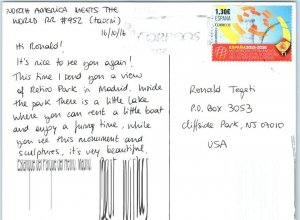 NORTH AMERICA MEETS THE
WORLD RR #952 (tacrii)
16/10/16
Hi Ronald!
It's nice to see you again!
This time I send you a view
of Retiro Park in Madrid. Inside
the park there is a little lake
where you can rent a little boat
and enjoy a funny time, while
you see this monument and
sculptures, it's very beautiful.
Estanque del Parque del Retiro. Madrid
1,30€
ESPAÑA
CORREOS
ESPAÑA 2015-2016
Ronald Tegeti
P.O. Box 3053
Cliffside Park, NJ 07010
USA